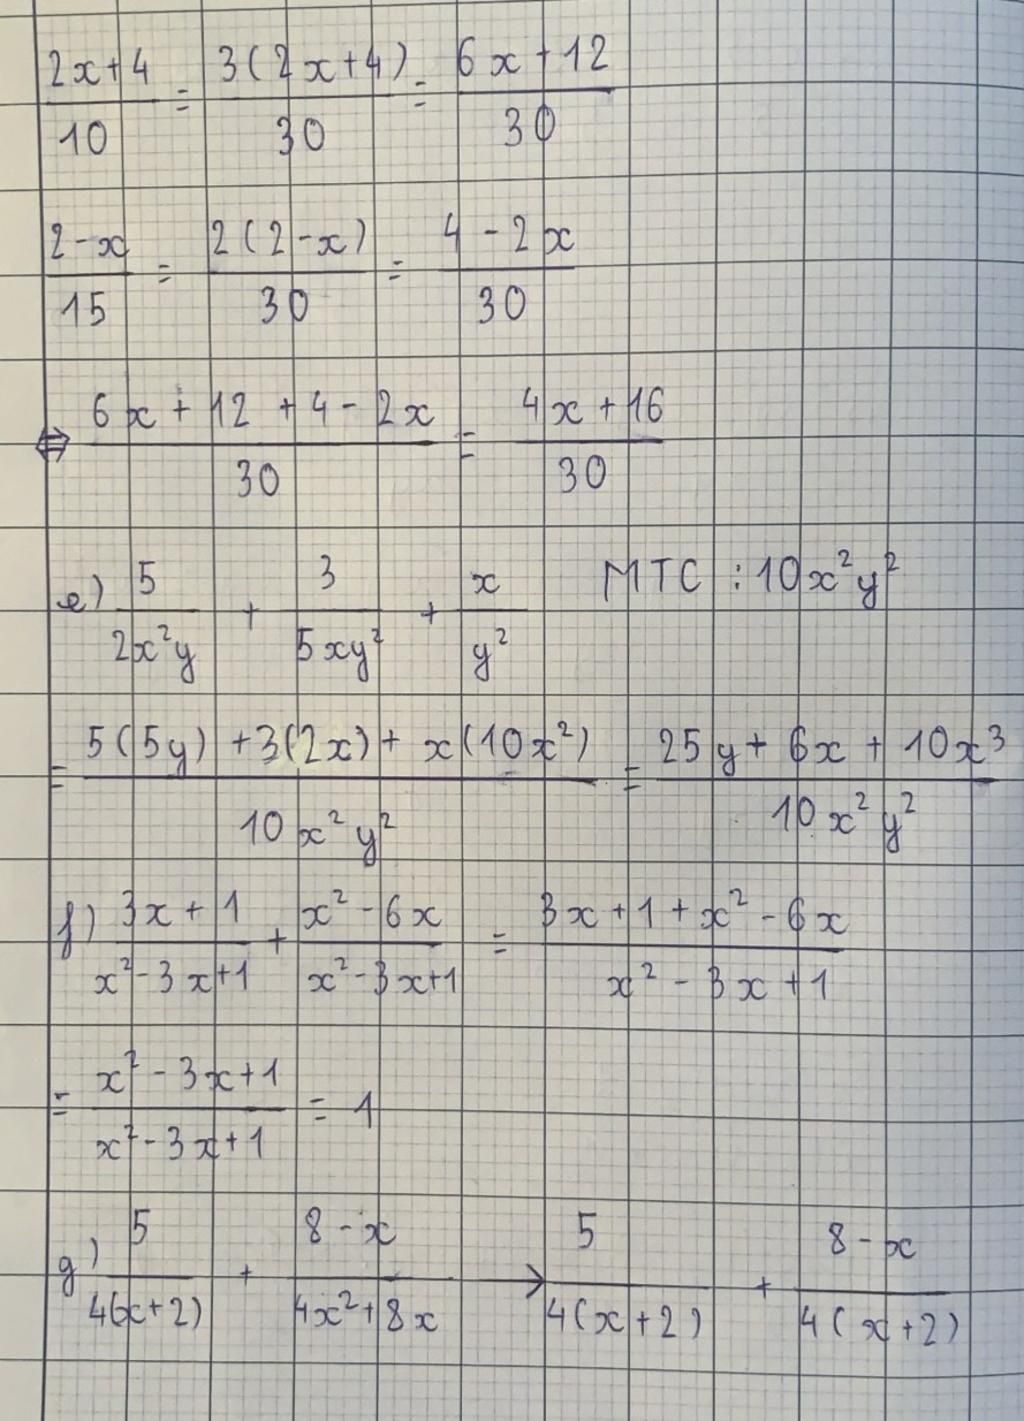 (2x+4)/10 = 3(2x+4)/30 = (6x+12)/30
(2-x)/15 = 2(2-x)/30 = (4-2x)/30
⇔ (6x+12+4-2x)/30 = (4x+16)/30
e) 5/(2x²y) + 3/(5xy²) + x/y² MTC : 10x²y²
= (5(5y)+3(2x)+x(10x²))/(10x²y²) = (25y+6x+10x³)/(10x²y²)
f) (3x+1)/(x²-3x+1) + (x²-6x)/(x²-3x+1) = (3x+1+x²-6x)/(x²-3x+1)
= (x²-3x+1)/(x²-3x+1) = 1
g) 5/(4(x+2)) + (8-x)/(4x²+8x) → 5/(4(x+2)) + (8-x)/(4(x+2))